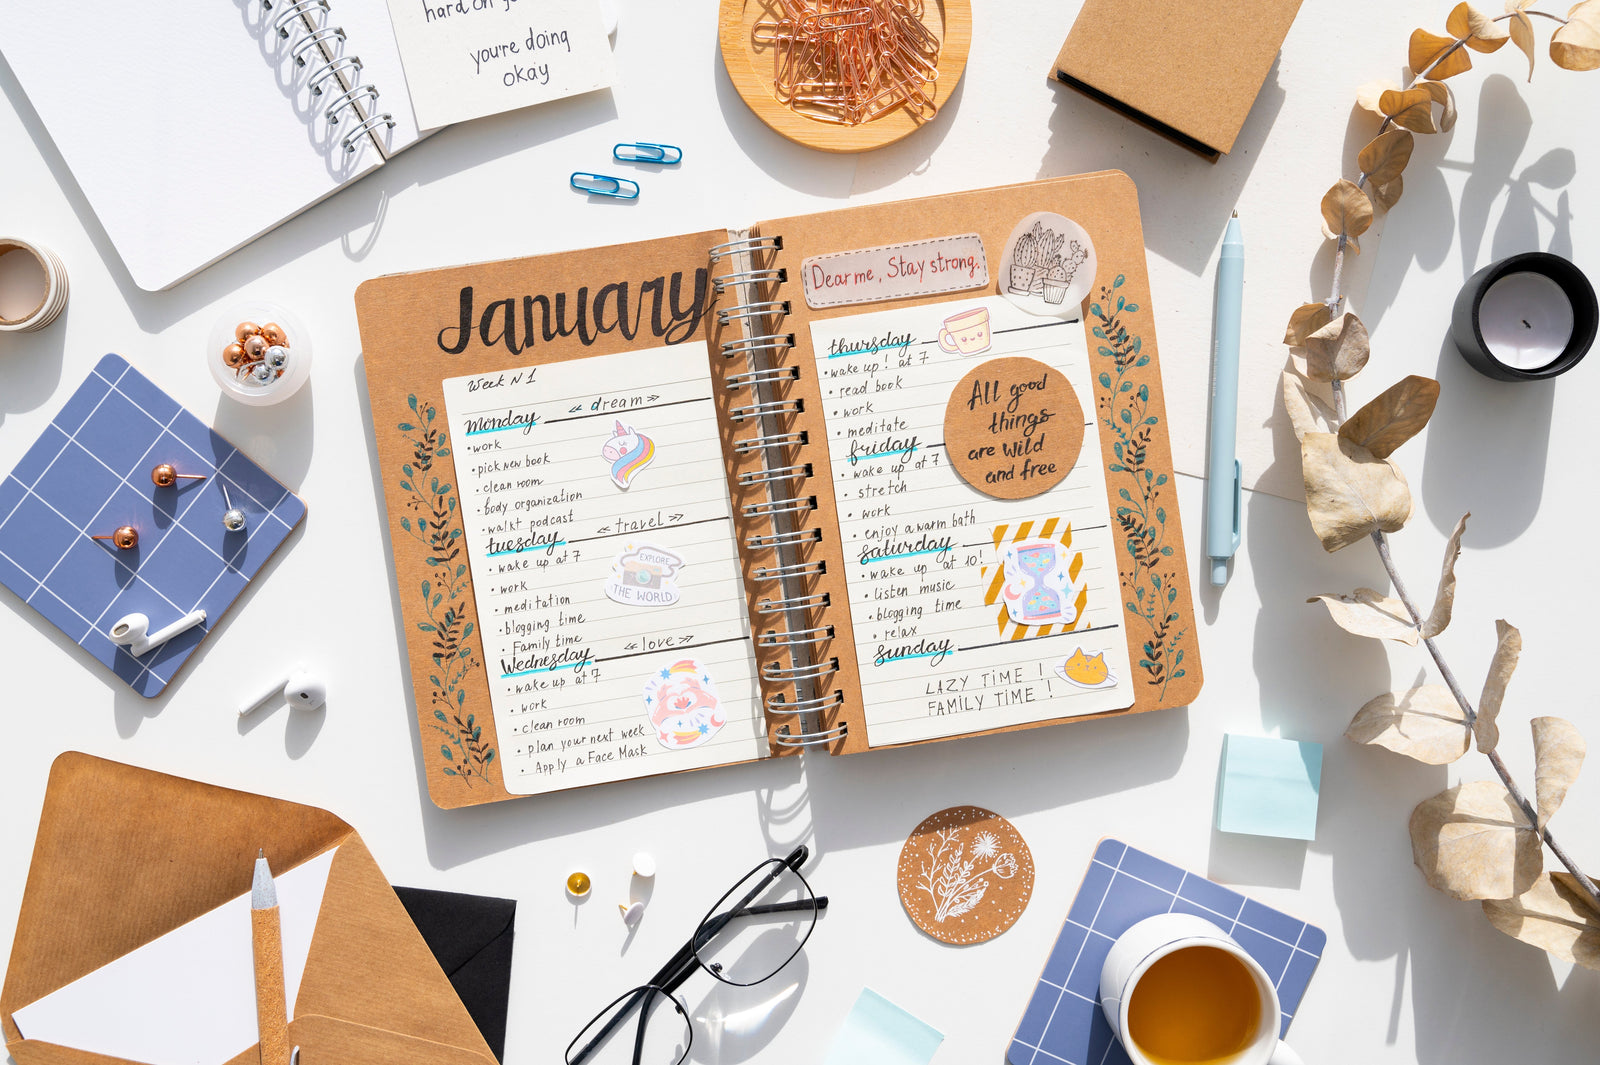 hard on
you're doing
okay
January
Week N 1
monday
« dream »
• work
• pick new book
• clean room
• body organization
• walkt podcast
tuesday
« travel »
• wake up at 7
• work
• meditation
• blogging time
• Family time
EXPLORE
THE WORLD!
Wednesday
« love »
• wake up at 7
• work
• clean room
• plan your next week
• Apply a Face Mask
Dear me, Stay strong.
thursday
• wake up! at 7
• read book
• work
• meditate
All good
things
are wild
and free
friday
• wake up at 7
• stretch
• work
• enjoy a warm bath
saturday
• wake up at 10!
• listen music
• blogging time
• relax
sunday
LAZY TIME !
FAMILY TIME !